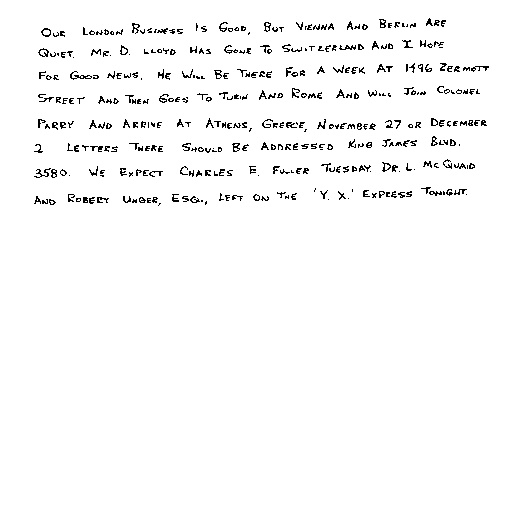 OUR LONDON BUSINESS IS GOOD, BUT VIENNA AND BERLIN ARE
QUIET. MR. D. LLOYD HAS GONE TO SWITZERLAND AND I HOPE
FOR GOOD NEWS. HE WILL BE THERE FOR A WEEK AT 1496 ZERMOTT
STREET AND THEN GOES TO TURIN AND ROME AND WILL JOIN COLONEL
PARRY AND ARRIVE AT ATHENS, GREECE, NOVEMBER 27 OR DECEMBER
2 LETTERS THERE SHOULD BE ADDRESSED KING JAMES BLVD.
3580. WE EXPECT CHARLES E. FULLER TUESDAY. DR. L. MCQUAID
AND ROBERT UNGER, ESQ., LEFT ON THE 'Y. X.' EXPRESS TONIGHT.